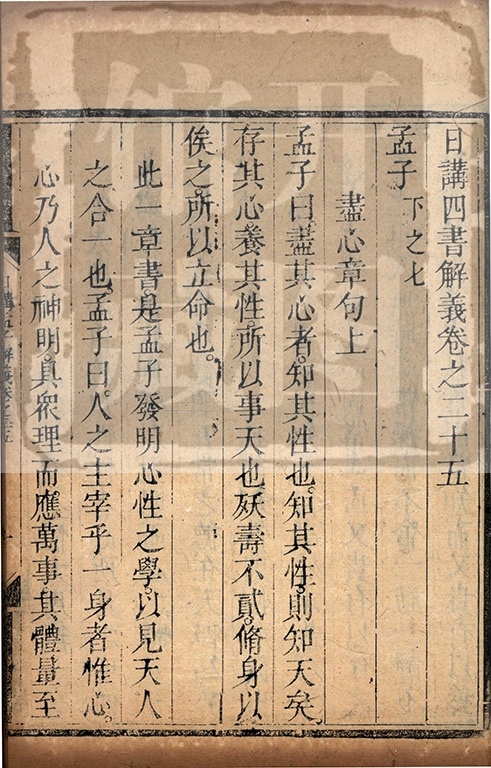 日講四書解義卷之二十五
孟子下之七
盡心章句上
孟子曰盡其心者。知其性也。知其性。則知天矣。
存其心。養其性。所以事天也。殀壽不貳。脩身以
俟之。所以立命也。
此一章書。是孟子發明心性之學。以見天人
之合一也。孟子曰。人之主宰乎一身者惟心。
心乃人之神明。具衆理而應萬事。其體量至